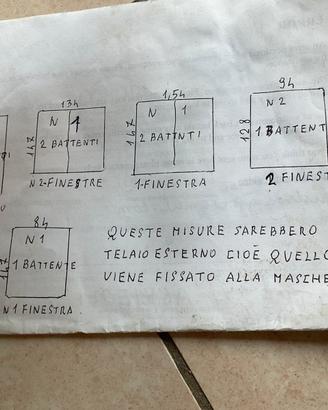 134
147
N 1
2 BATTENTI
N 2-FINESTRE
1,54
147
N 1
2 BATTNTI
1-FINESTRA
94
128
N 2
1 BATTENT
2 FINEST
84
147
N 1
1 BATTENTE
N 1 FINESTRA
QUESTE MISURE SAREBBERO
TELAIO ESTERNO CIOÈ QUELLO
VIENE FISSATO ALLA MASCHE